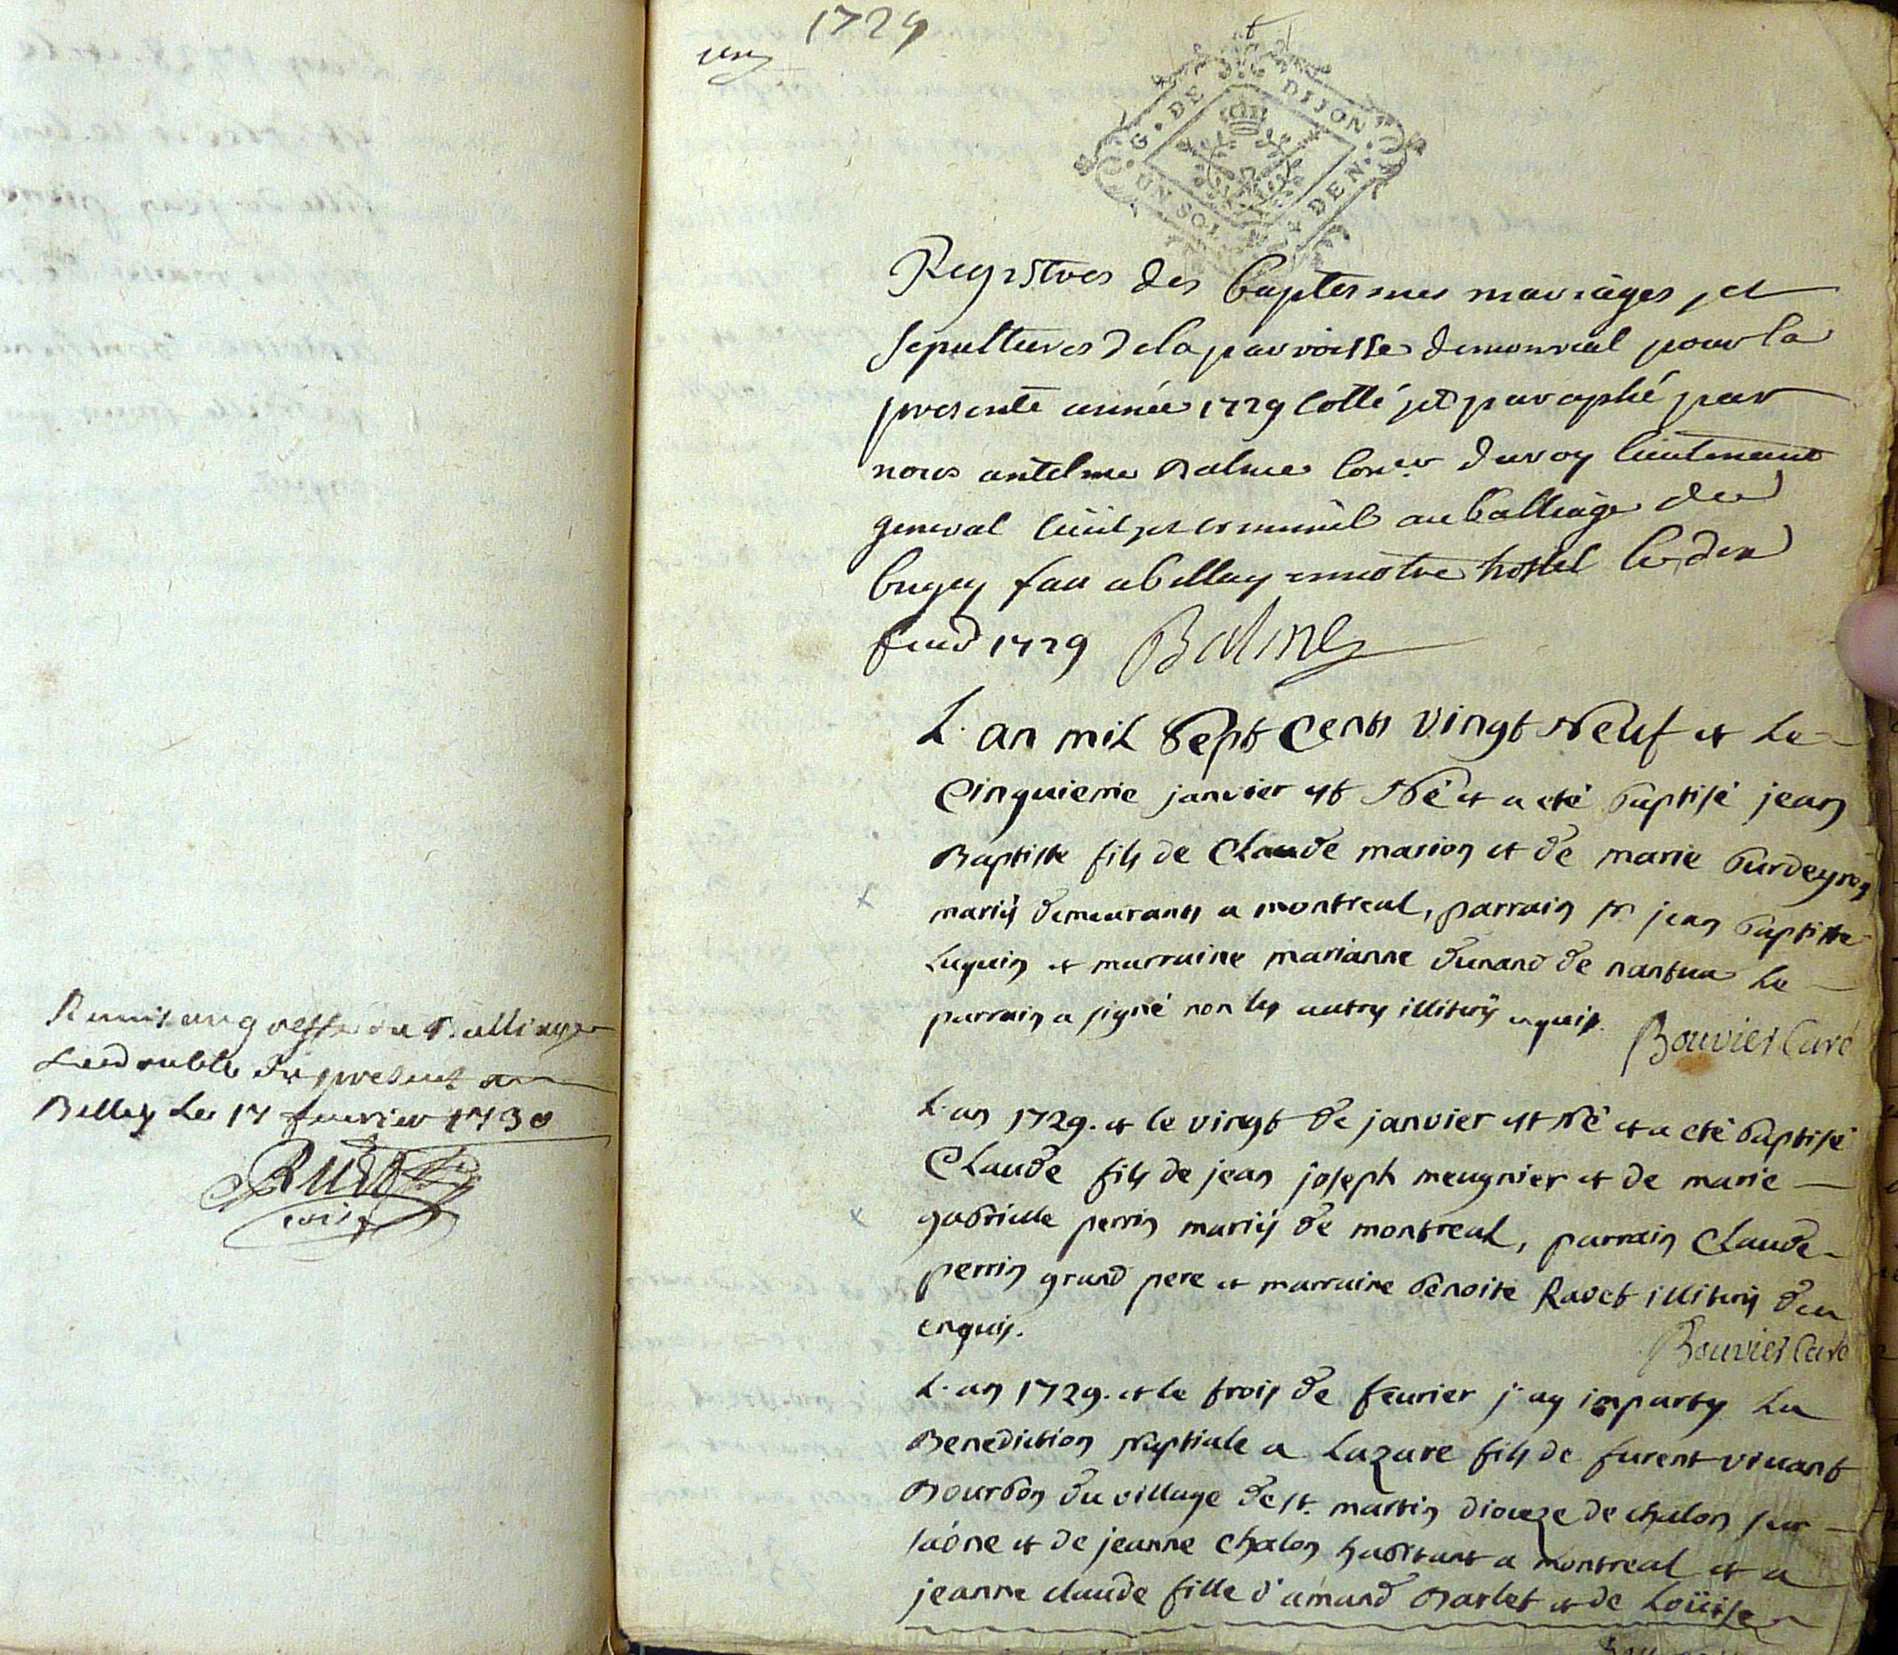 Remis au greffe du balliage
Le double du present
Belley le 17 fevrier 1730
1729
un
G. DE DIJON
UN SOL DEN.
Registres des baptesmes mariages et
sepultures de la parroisse de monreal pour la
presente année 1729 Cotté et paraphé par
nous antelme Balme Coner du roy lieutenant
general Ciuil et criminel au balliage de
bugey fait a belley en notre hostel le
1729 Balme
L'an mil sept cents vingt Neuf et Le
Cinquieme janvier est Né et a eté baptisé jean
Baptiste fils de Claude marion et de marie burdeyron
mariés demeurants a montreal, parrain sr jean baptiste
Luguin et marraine marianne durand de nantua Le
parrain a signé non les autres illiterés enquis. Bouvier Curé
L'an 1729. et le vingt de janvier est Né et a eté baptisé
Claude fils de jean joseph meugnier et de marie
gabrielle perrin mariés de montreal, parrain Claude
perrin grand pere et marraine benoite Ravet illiterés d'eu
enquis. Bouvier Curé
L'an 1729. et le trois de feurier j'ay imparty La
Benediction Nuptiale a Lazare fils de furent viuant
Bourbon du village de st. martin dioceze de chalon sur
saône et de jeanne chalon habitant a montreal et a
jeanne claude fille d'amand Barlet et de Loüise